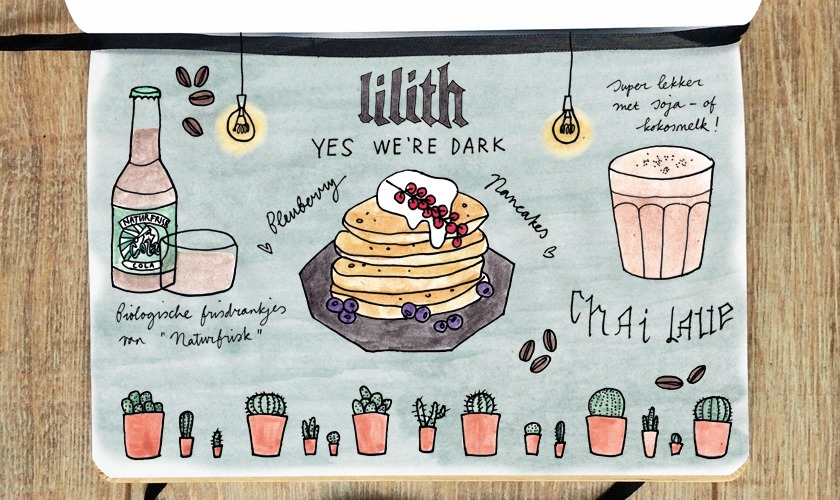 lilith
YES WE'RE DARK
Super lekker
met soja- of
kokosmelk!
Bleuberry
Pancakes
NATURFRISK
COLA
Biologische frisdrankjes
van "Naturfrisk"
Chai Latte